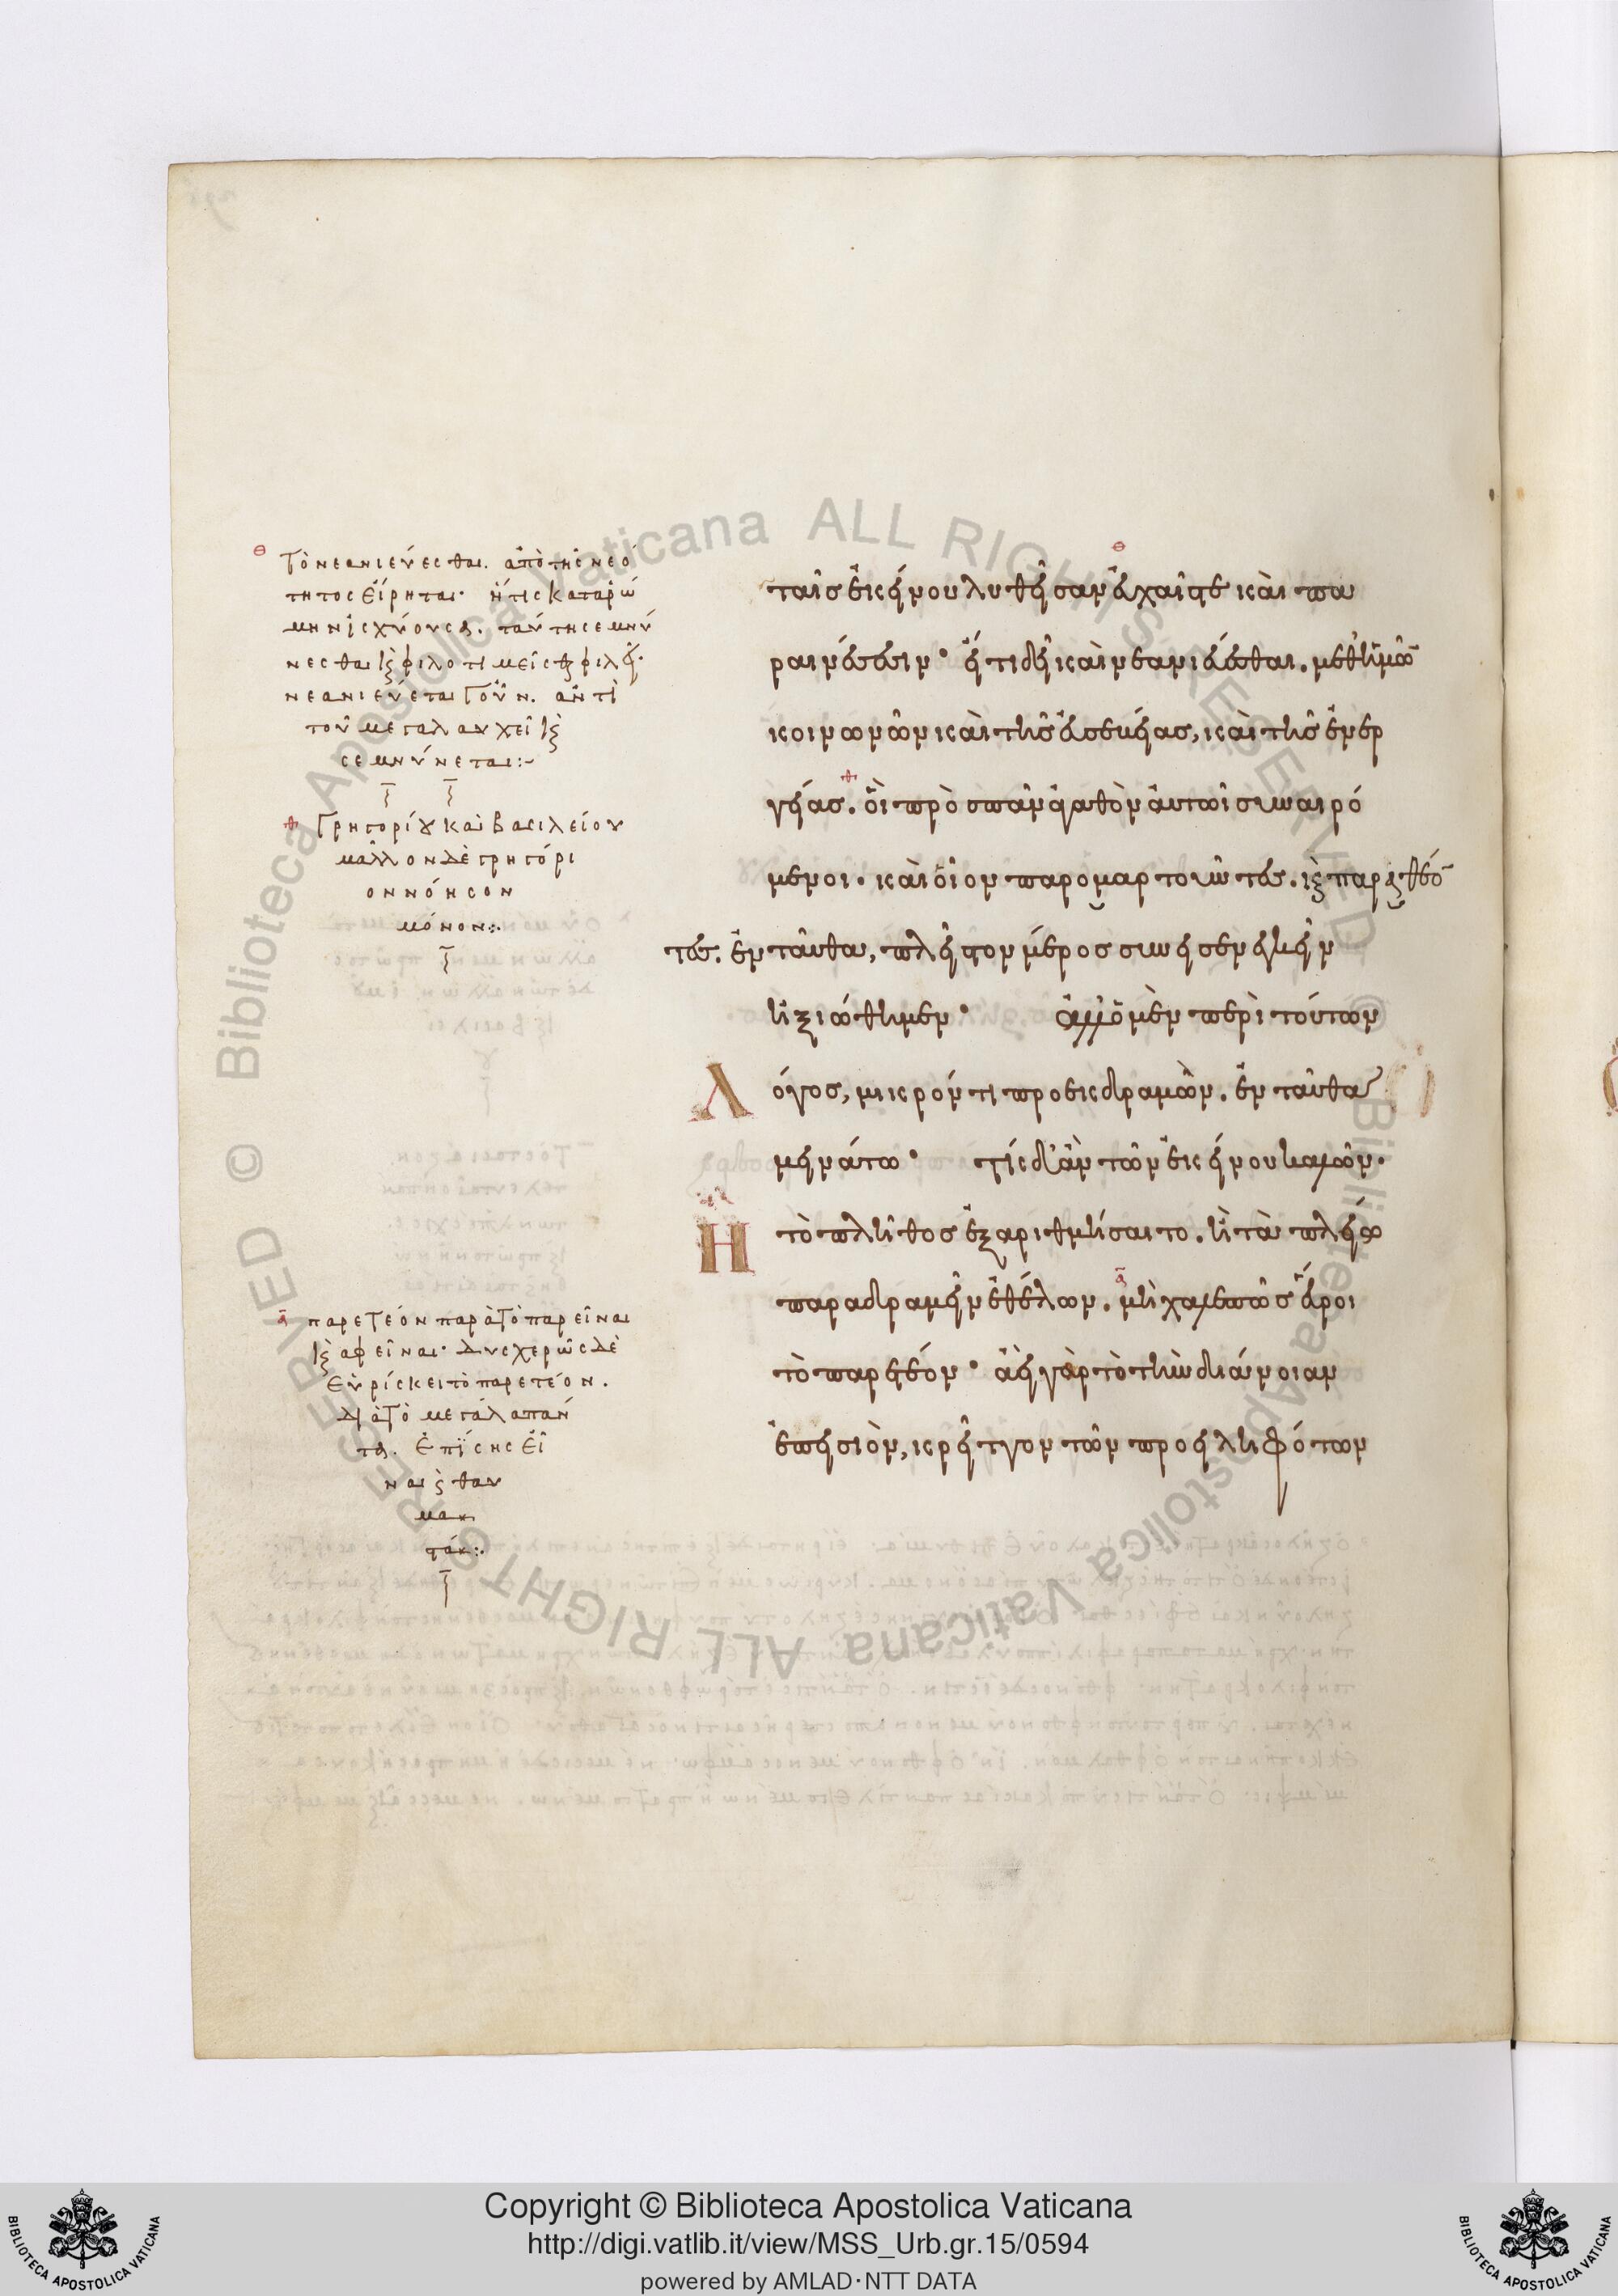 Τὸ νεανιεύεσθαι. ἀπὸ τῆς νεό
τητος εἴρηται· ἥτις κατὰ ῥώ
μην ἰσχύουσα. ταύτη σεμνύ
νεσθαι καὶ φιλοτιμεῖσθαι φιλεῖ·
νεανιεύεται γοῦν. ἀντὶ
τοῦ μεγαλαυχεῖ καὶ
σεμνύνεται:~
Γρηγορίου καὶ βασιλείου
μᾶλλον δὲ γρηγόρι
ον νόησον
μόνον:
παρετέον παρὰ τὸ παρεῖναι
καὶ ἀφεῖναι· δυσχερῶς δὲ
εὑρίσκει τὸ παρετέον.
διὰ τὸ μεγάλα πάν
τα. ἐπίσης εἶ
ναι καὶ θαυ
μα
στά:
ταῖς ἐκείνου λυθεῖσαν εὐχαῖς τε καὶ πα
ραινέσεσιν· εἴ τι δεῖ καὶ νεανιεύεσθαι. μεθ' ἡμῶν
κοινωνῶν καὶ τῆς εὐσεβείας, καὶ τῆς ἐνερ
γείας. οἳ πρὸς πᾶν ἀγαθὸν αὐτῶι συναιρό
μενοι. καὶ οἷον παρομαρτοῦντες. καὶ παραθέον
τες. ἐνταῦθα, πλεῖστον μέρος συνεισενεγκεῖν
ἠξιώθημεν· ἀλλ' ὁ μὲν περὶ τούτων
λόγος, μικρόν τι προεκδραμὼν. ἐνταῦθα
μεινάτω· τίς δ' ἂν τῶν ἐκείνου καλῶν.
ἢ τὸ πλῆθος ἐξαριθμήσαιτο. ἢ τὰ πλείω
παραδραμεῖν ἐθέλων. μὴ χαλεπῶς εὕροι
τὸ παρετέον· ἀεὶ γὰρ τὸ τὴν διάνοιαν
ἐπεισιὸν, κρεῖττον τῶν προειληφότων
Copyright © Biblioteca Apostolica Vaticana
http://digi.vatlib.it/view/MSS_Urb.gr.15/0594
powered by AMLAD·NTT DATA